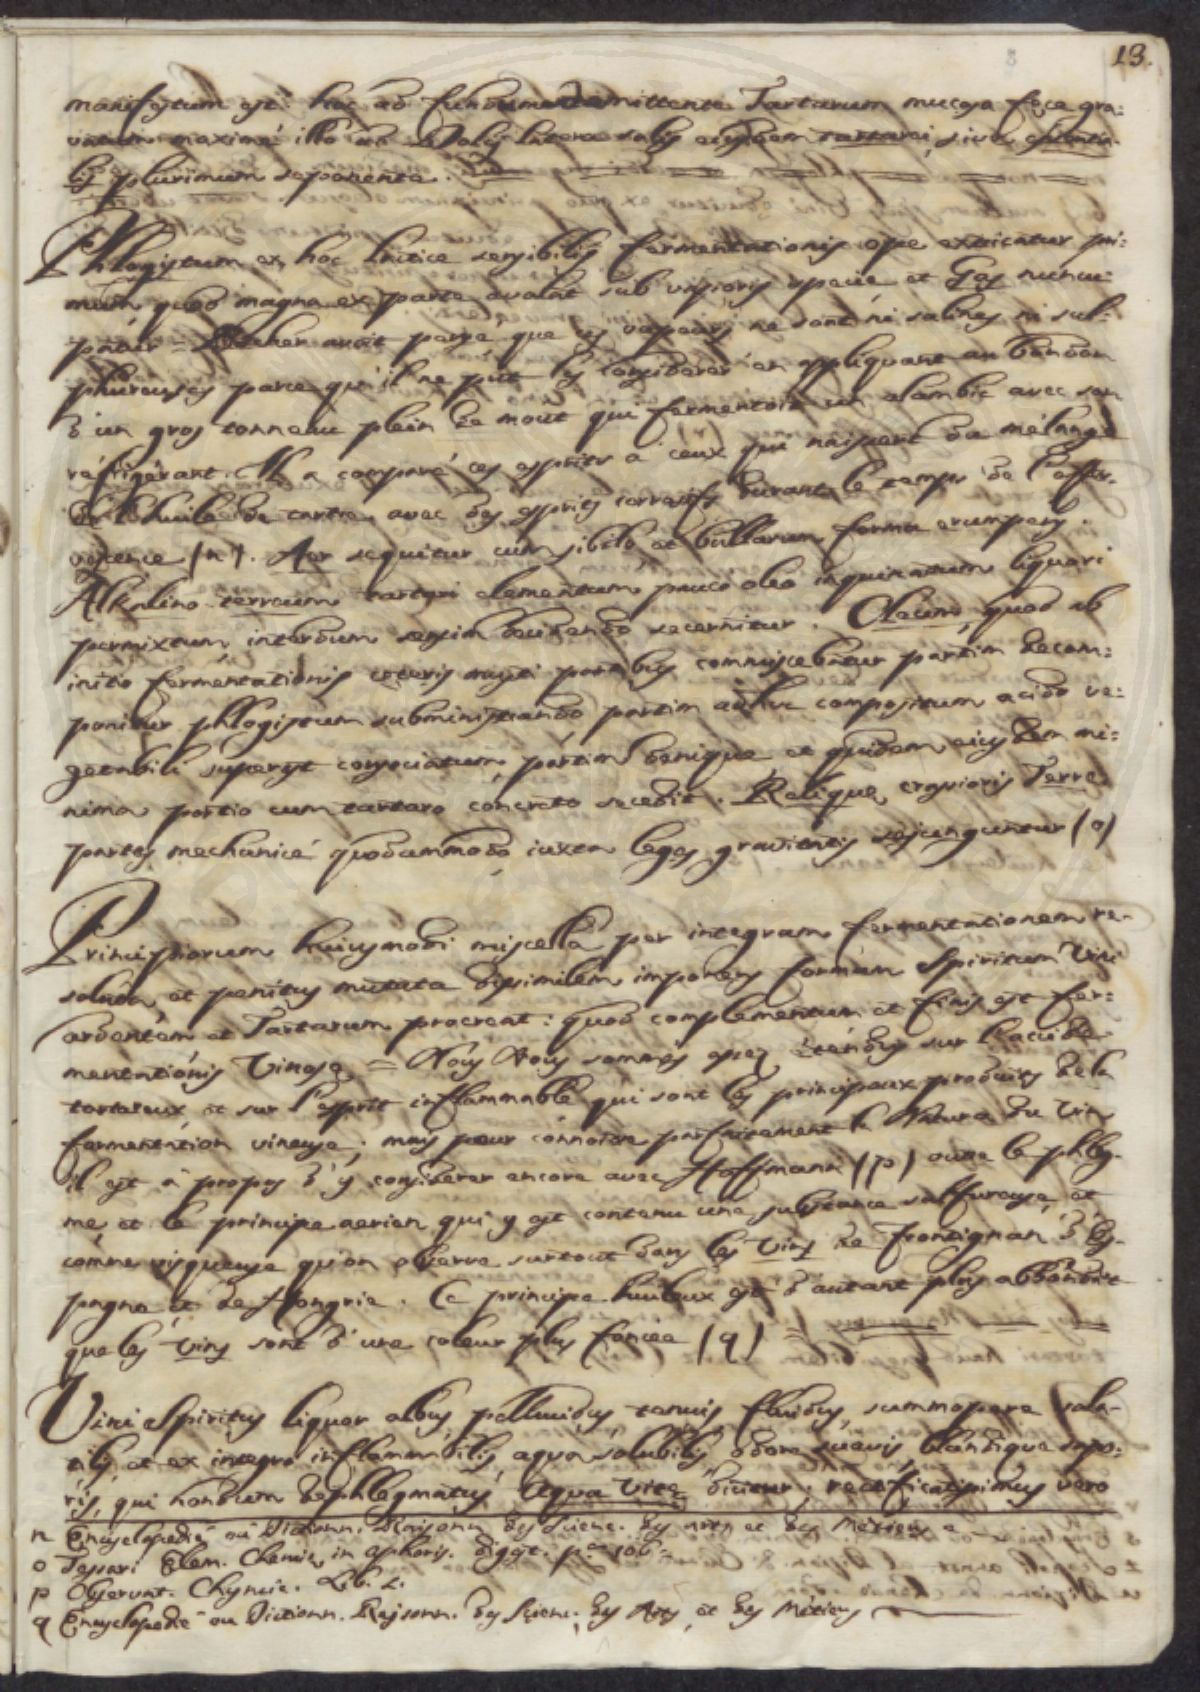 13.
manifestum est: hoc ad fundum demittente Tartarum mucosa fece gra-
vatum maxime illo ad Dolij latera salis eiusdem tartarei, sive essentia-
lis plurimum seponente.
Phlogistum ex hoc latice sensibilis fermentationis ope extricatur pri-
mum quod magna ex parte avolat sub vaporis specie et Gas nuncu-
patur = Becher avoit pensé que ces vapeurs ne sont ni salines ni sul-
phureuses parce qu'il ne put les considerer en appliquant au bondon
d'un gros tonneau plein de mout qui fermentoit un alambic avec son
réfrigérant. M. a comparé ces esprits a ceux qui naissent du mélange
de l'huile de tartre avec des esprits corrosifs durant le temps de l'effer-
vescence (n). Aer sequitur cum sibilo et bullarum forma erumpens.
Alkalino terreum tartari elementum pauco oleo inquinatum liquori
permixtum interdum sensim decidendo secernitur. Oleum, quod ab
initio fermentationis ceteris musti partibus commiscebatur partim decom-
ponitur phlogistum subministrando partim adhuc compositum acido ve-
getabili superest consociatum, partim denique, et quidem eiusdem mi-
nima portio cum tartaro concreto secedit. Relique crassioris Terre
partes mechanicé quodammodo iuxta leges gravitatis sejunguntur (o)
Principiorum huiusmodi miscella per integram fermentationem re-
soluta, et penitus mutata dissimilem imponens formam Spiritum Vini
ardentem et Tartarum procreat: quod complementum et finis est fer-
mentationis Vinose = Nous Nous sommes assez étendus sur l'acide
tartareux et sur l'esprit inflammable qui sont les principaux produits de la
fermentation vineuse; mais pour connoitre parfaitement la Nature du Vin
il est à propos d'y considerer encore avec Hoffmann (p) outre le phleg-
me et le principe aerien qui y est contenu une substance sulfureuse, et
comme visqueuse qu'on observe surtout dans les Vins de Frontignan d'Es-
pagne et de Hongrie. Ce principe huileux est d'autant plus abbondant
que les Vins sont d'une coleur plus foncée (q) =
Vini Spiritus liquor albus, pellucidus, tenuis, fluidus, summopere vola-
tilis, et ex integro inflammabilis, aqua solubilis, odore suavis blandique sapo-
ris, qui nondum dephlegmatus Aqua Vite dicitur; rectificatissimus vero
n Encyclopedié ou Dictionn. Raisonn. des Scienc. des arts et des Métiers
o Tessari Elem. Chemie in aphoris. digest. p.
p Observat. Chymic. Lib. 2.
q Encyclopedié ou Dictionn. Raisonn. des Scienc. des Arts et des Métiers